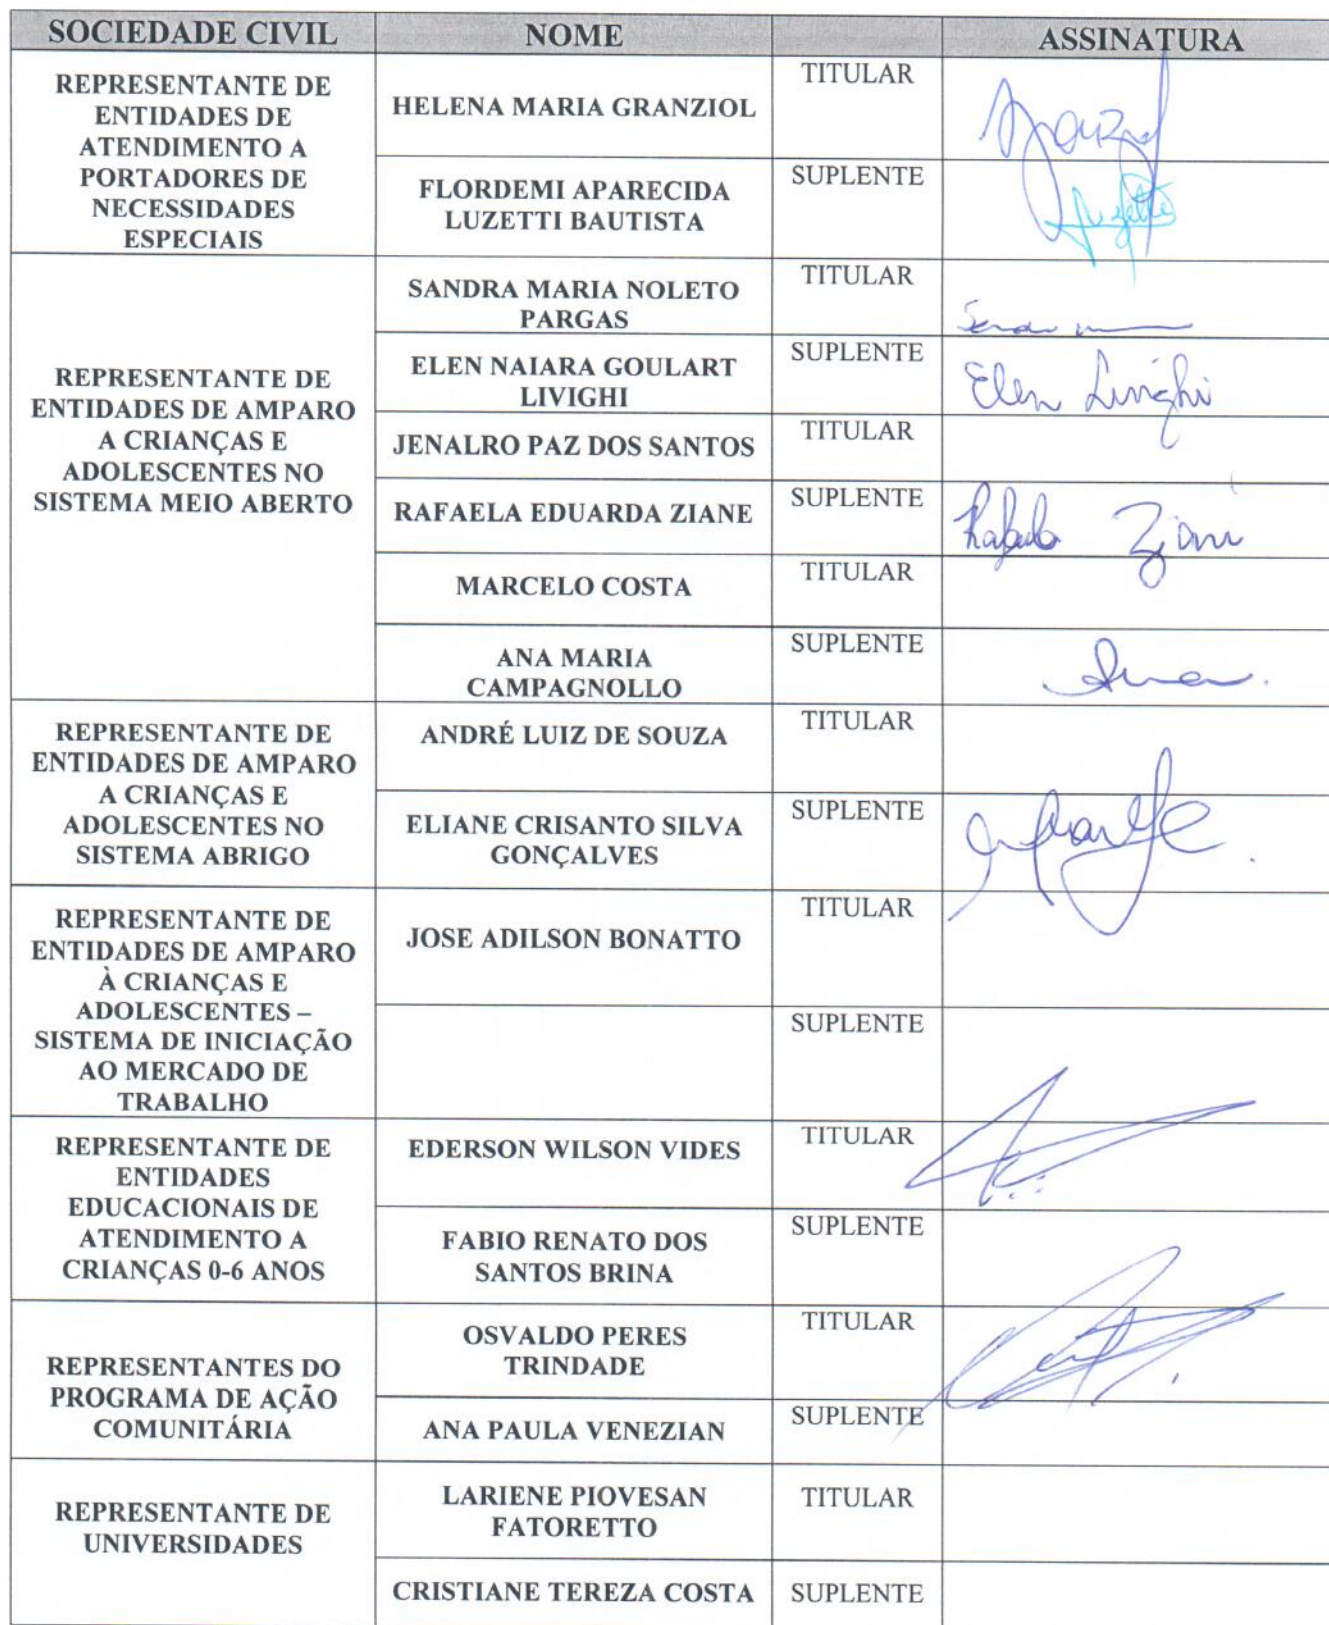 SOCIEDADE CIVIL NOME ASSINATURA
REPRESENTANTE DE
ENTIDADES DE
ATENDIMENTO A
PORTADORES DE
NECESSIDADES
ESPECIAIS
HELENA MARIA GRANZIOL
TITULAR
FLORDEMI APARECIDA
LUZETTI BAUTISTA
SUPLENTE
REPRESENTANTE DE
ENTIDADES DE AMPARO
A CRIANÇAS E
ADOLESCENTES NO
SISTEMA MEIO ABERTO
SANDRA MARIA NOLETO
PARGAS
TITULAR
ELEN NAIARA GOULART
LIVIGHI
SUPLENTE
Elen Livighi
JENALRO PAZ DOS SANTOS
TITULAR
RAFAELA EDUARDA ZIANE
SUPLENTE
MARCELO COSTA
TITULAR
ANA MARIA
CAMPAGNOLLO
SUPLENTE
REPRESENTANTE DE
ENTIDADES DE AMPARO
A CRIANÇAS E
ADOLESCENTES NO
SISTEMA ABRIGO
ANDRÉ LUIZ DE SOUZA
TITULAR
ELIANE CRISANTO SILVA
GONÇALVES
SUPLENTE
REPRESENTANTE DE
ENTIDADES DE AMPARO
À CRIANÇAS E
ADOLESCENTES –
SISTEMA DE INICIAÇÃO
AO MERCADO DE
TRABALHO
JOSE ADILSON BONATTO
TITULAR
SUPLENTE
REPRESENTANTE DE
ENTIDADES
EDUCACIONAIS DE
ATENDIMENTO A
CRIANÇAS 0-6 ANOS
EDERSON WILSON VIDES
TITULAR
FABIO RENATO DOS
SANTOS BRINA
SUPLENTE
REPRESENTANTES DO
PROGRAMA DE AÇÃO
COMUNITÁRIA
OSVALDO PERES
TRINDADE
TITULAR
ANA PAULA VENEZIAN
SUPLENTE
REPRESENTANTE DE
UNIVERSIDADES
LARIENE PIOVESAN
FATORETTO
TITULAR
CRISTIANE TEREZA COSTA
SUPLENTE